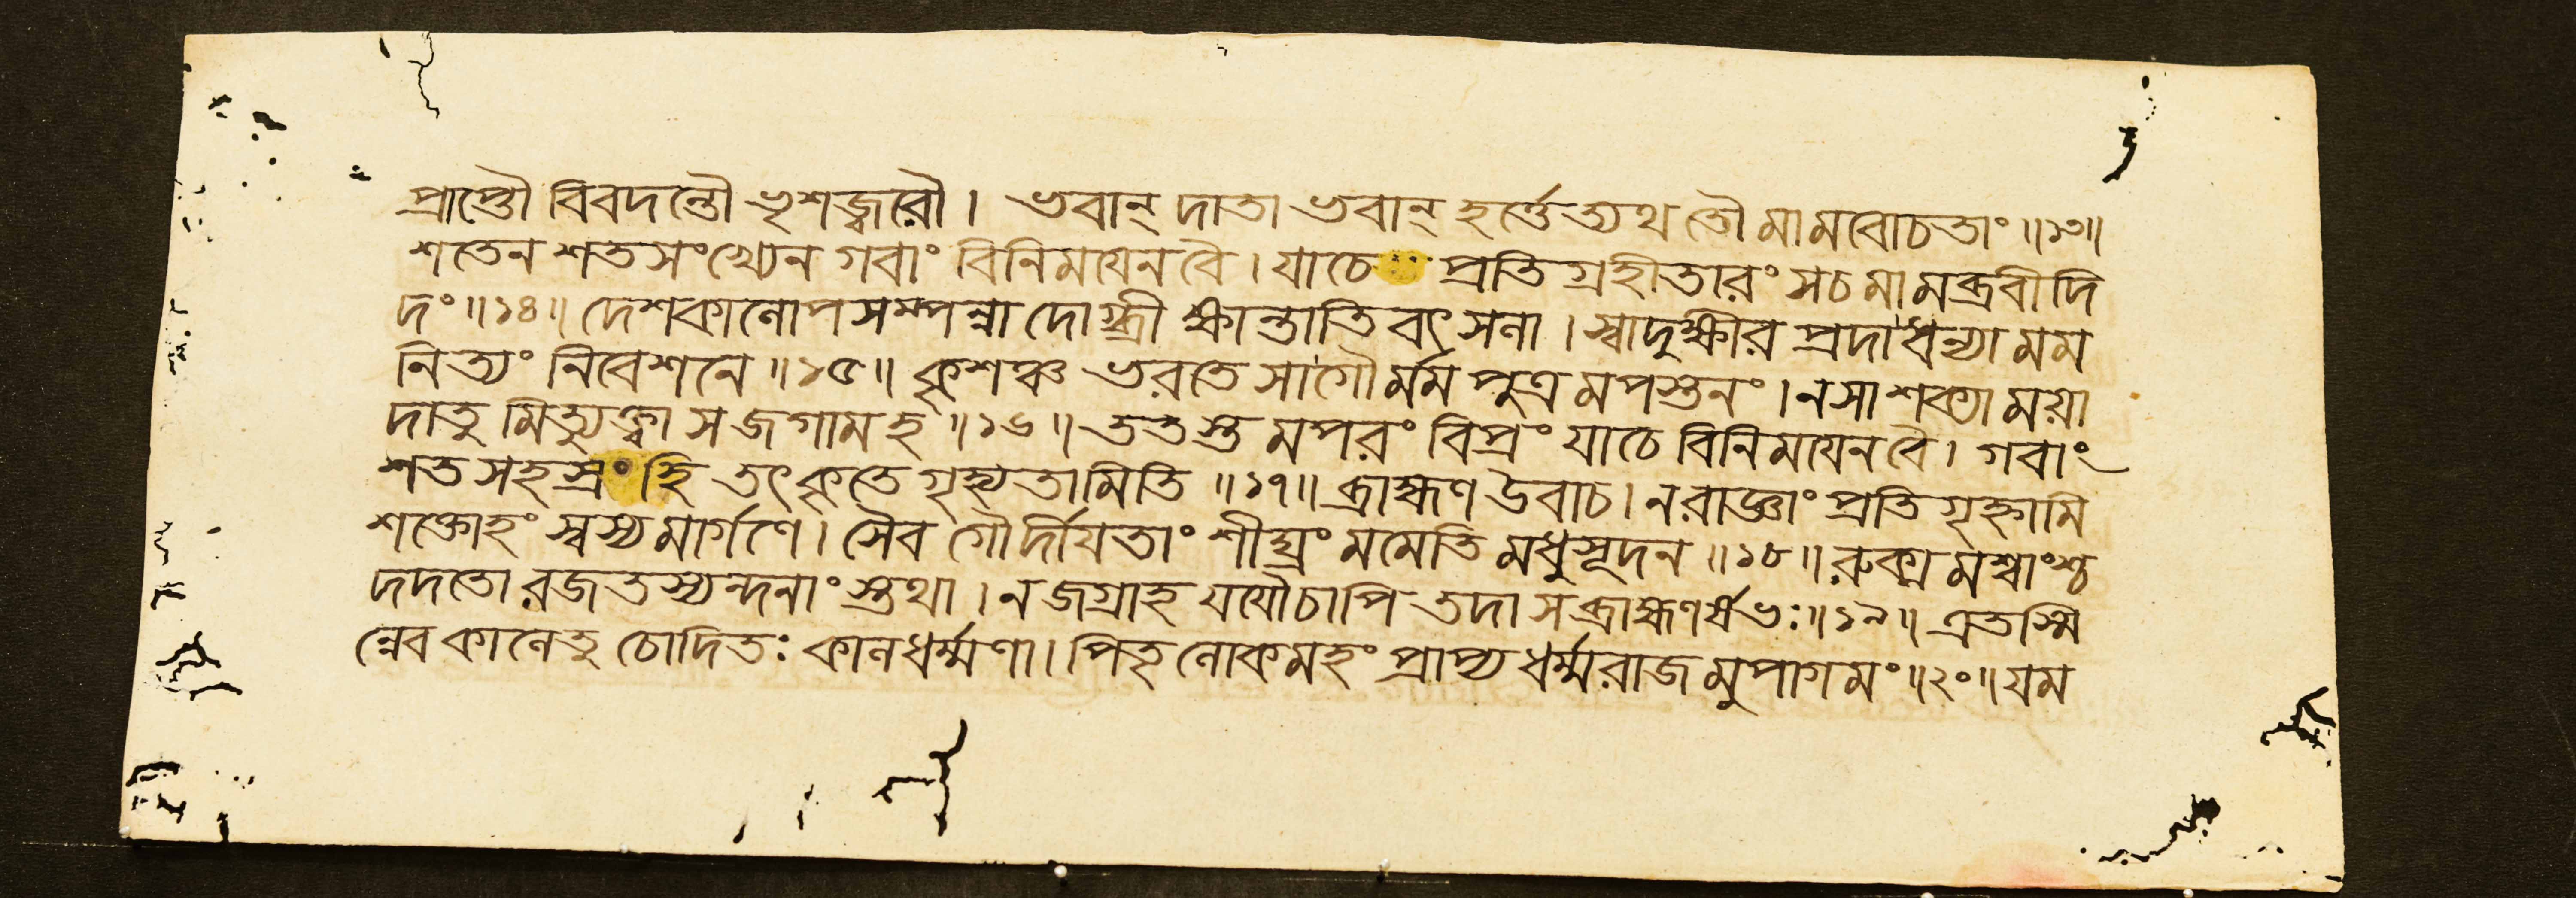 প্রাপ্তৌ বিবদন্তৌ ভৃশজ্বরৌ । ভবান্ দাতা ভবান্ হর্ত্তেত্যথ তৌ মামবোচতাং ॥১৩॥
শতেন শতসংখ্যেন গবাং বিনিময়েন বৈ । যাচে প্রতিগ্রহীতারং সচ মামব্রবীদি
দং ॥১৪॥ দেশকালোপসম্পন্না দোগ্ধ্রী ক্ষান্তাতিবৎসলা । স্বাদুক্ষীরপ্রদা ধন্যা মম
নিত্যং নিবেশনে ॥১৫॥ কৃশঞ্চ ভরতে সা গৌর্মম পুত্রমপস্তনং । ন সা শক্যা ময়া
দাতুমিত্যুক্ত্বা স জগাম হ ॥১৬॥ ততস্তমপরং বিপ্রং যাচে বিনিময়েন বৈ । গবাং
শতসহস্রং হি তৎকৃতে গৃহ্যতামিতি ॥১৭॥ ব্রাহ্মণ উবাচ । ন রাজ্ঞাং প্রতিগৃহ্নামি
শক্তোহং স্বস্য মার্গণে । সৈব গৌর্দীয়তাং শীঘ্রং মমেতি মধুসূদন ॥১৮॥ রুক্মমশ্বাংশ্চ
দদতো রজতস্যন্দনাংস্তথা । ন জগ্রাহ যযৌ চাপি তদা স ব্রাহ্মণর্ষভঃ ॥১৯॥ এতস্মি
ন্নেব কালে তু চোদিতঃ কালধর্ম্মণা । পিতৃলোকমহং প্রাপ্য ধর্ম্মরাজমুপাগমং ॥২০॥ যম